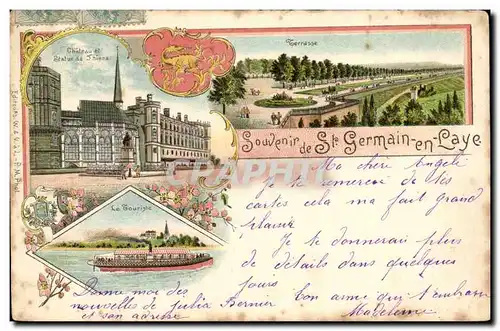 Château et
Statue de Thiers
Terrasse
Souvenir de St Germain-en-Laye
Le Touriste
Ma chère Angèle
Je te remercie de tes
cartes cela ma fait grand
plaisir
Je te donnerai plus
de détails dans quelques
jours
ton amie qui t'embrasse
Madeleine
Donne moi des
nouvelles de julia Bernier
et son adresse